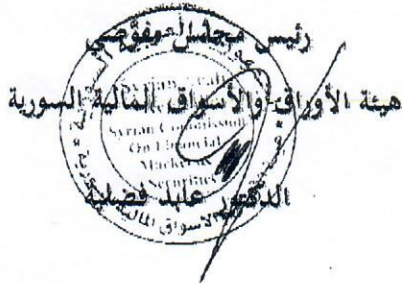 رئيس مجلس مفوضي
هيئة الأوراق والأسواق المالية السورية
Syrian Commission
On Financial
Markets
Securities
الدكتور عابد فضلية
الاسواق المالية